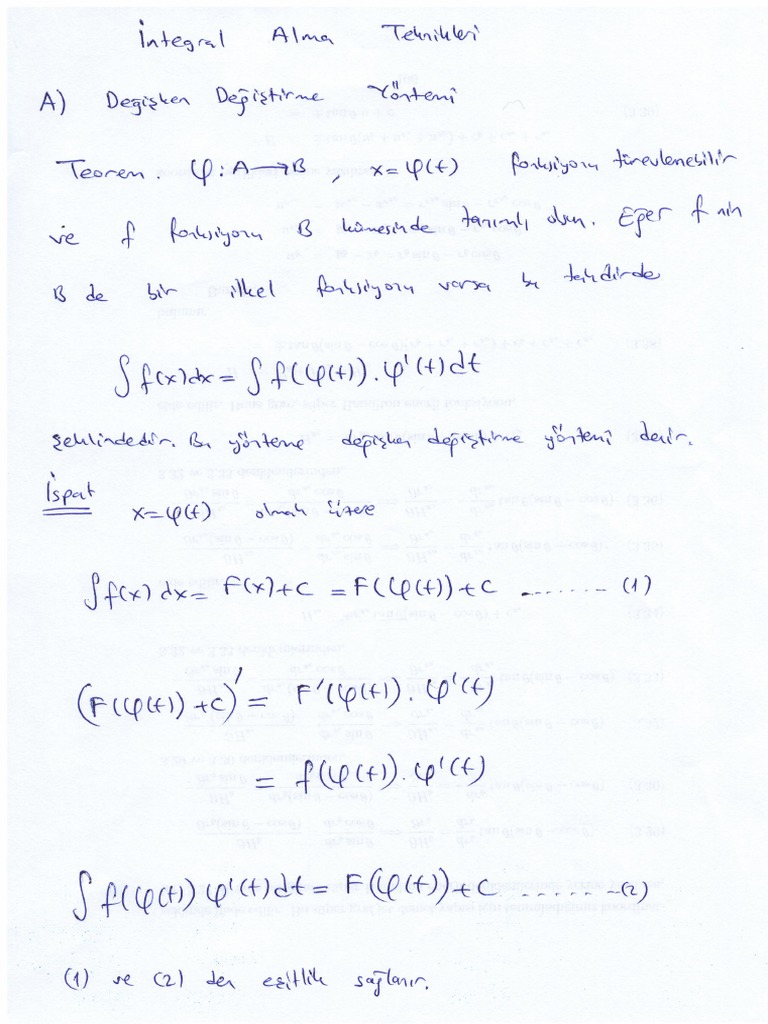 İntegral Alma Teknikleri
A) Değişken Değiştirme Yöntemi
Teorem. φ : A → B , x = φ(t) fonksiyonu türevlenebilir
ve f fonksiyonu B kümesinde tanımlı olsun. Eğer f nin
B de bir ilkel fonksiyonu varsa bu takdirde
∫ f(x) dx = ∫ f(φ(t)) . φ'(t) dt
şeklindedir. Bu yönteme değişken değiştirme yöntemi denir.
İspat
x = φ(t) olmak üzere
∫ f(x) dx = F(x) + C = F(φ(t)) + C ........ (1)
(F(φ(t)) + C)' = F'(φ(t)) . φ'(t)
= f(φ(t)) . φ'(t)
∫ f(φ(t)) φ'(t) dt = F(φ(t)) + C ........ (2)
(1) ve (2) den eşitlik sağlanır.